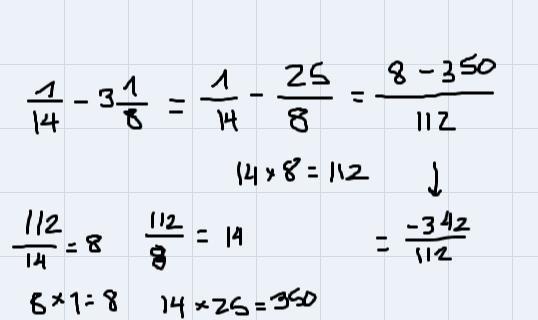 1/14 - 3 1/8 = 1/14 - 25/8 = (8 - 350)/112
14 × 8 = 112 ↓
112/14 = 8 112/8 = 14 = -342/112
8 × 1 = 8 14 × 25 = 350